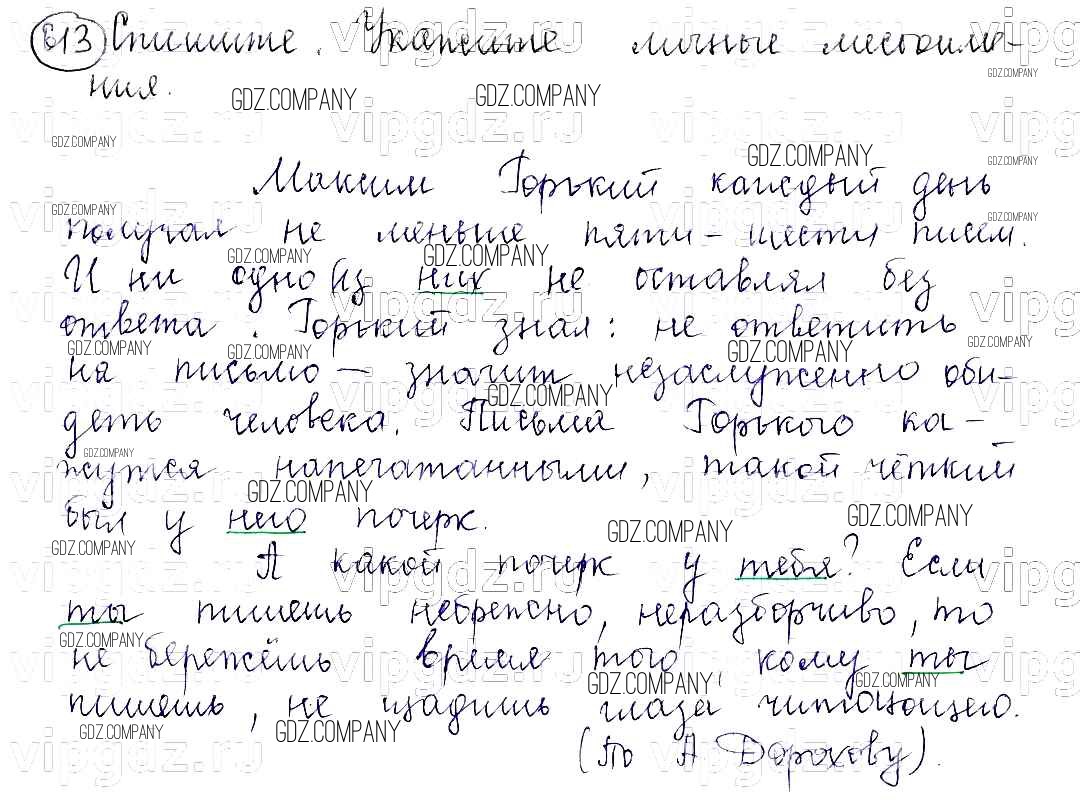 613 Спишите. Укажите личные местоиме-
ния.
Максим Горький каждый день
получал не меньше пяти – шести писем.
И ни одно из них не оставлял без
ответа. Горький знал: не ответить
на письмо – значит незаслуженно оби-
деть человека. Письма Горького ка-
жутся напечатанными, такой чёткий
был у него почерк.
А какой почерк у тебя? Если
ты пишешь небрежно, неразборчиво, то
не бережёшь время того, кому ты
пишешь, не щадишь глаза читающего.
(По А. Дорохову).
GDZ.COMPANY
vipgdz.ru